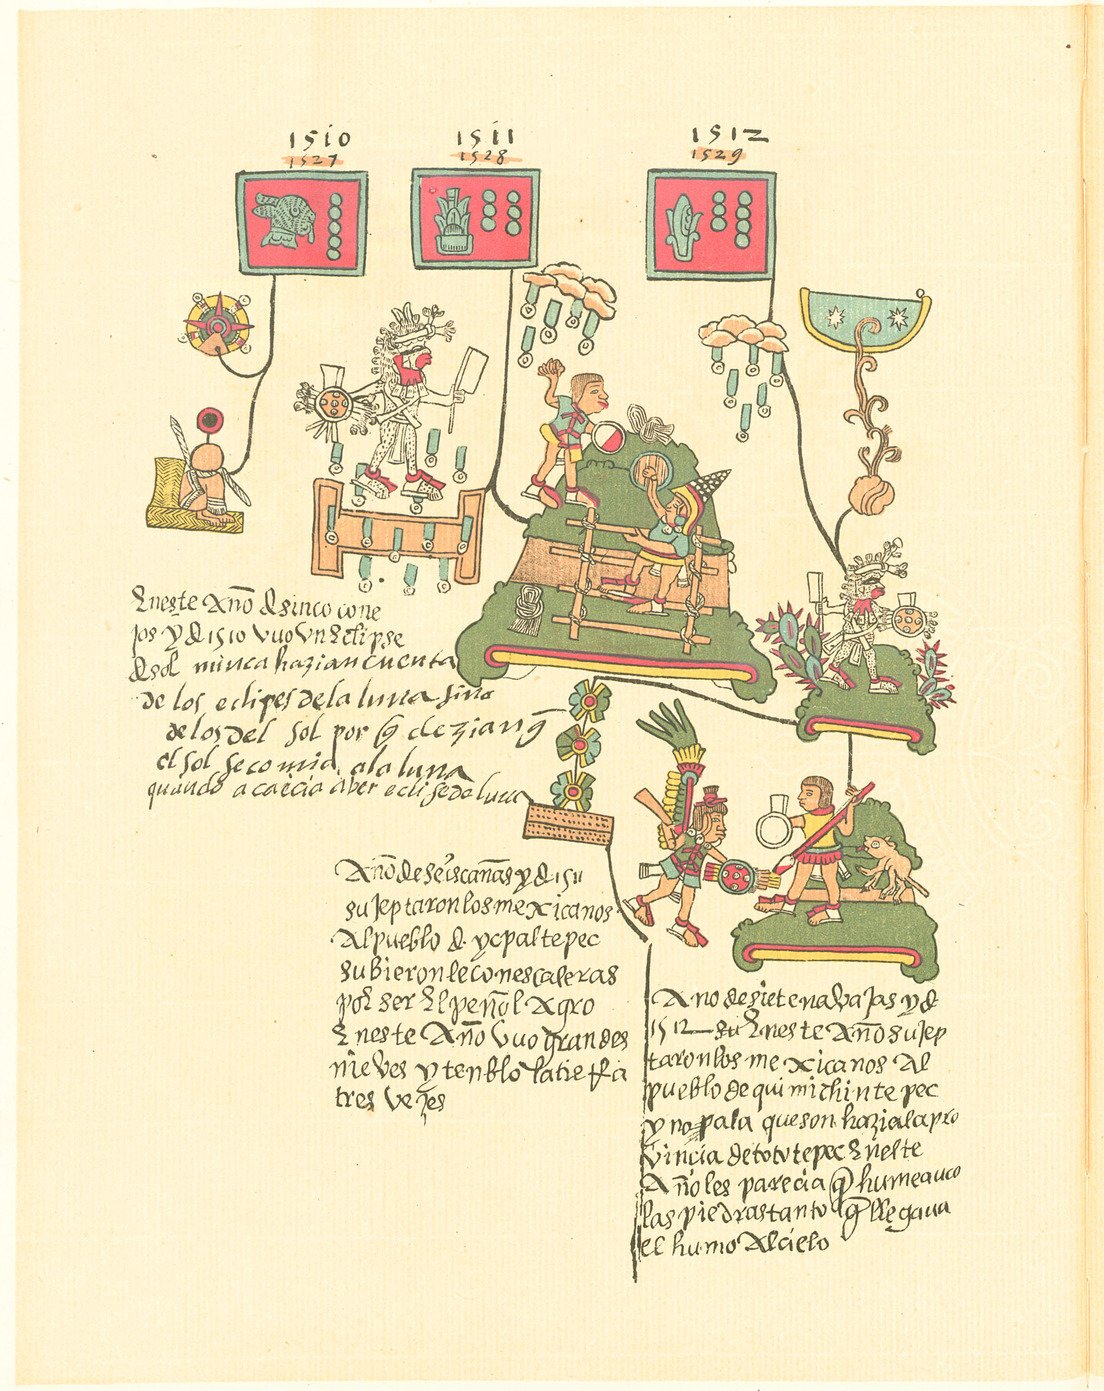 1510
1527
1511
1528
1512
1529
Eneste Año d sinco cone
jos y d 1510 vuo vn Eclipse
d sol nunca hazian cuenta
de los eclipes de la luna sino
de los del sol por q̃ dezian q̃
el sol se comia ala luna
quando acaecia aber eclise de luna
Año de seis cañas y d 1511
sujeptaron los mexicanos
Al pueblo d ycpaltepec
subieronle con escaleras
por ser El peñol Agro
Eneste Año vuo grandes
nieves y tenblo la tierra
tres vezes
Ano de siete navajas y d
1512 Eneste Año sujep
taron los mexicanos Al
pueblo de quimichintepec
y nopala que son hazia la pro
vincia de tototepec Eneste
Año les parecia q̃ humeava
las piedras tanto q̃ llegava
el humo Al cielo